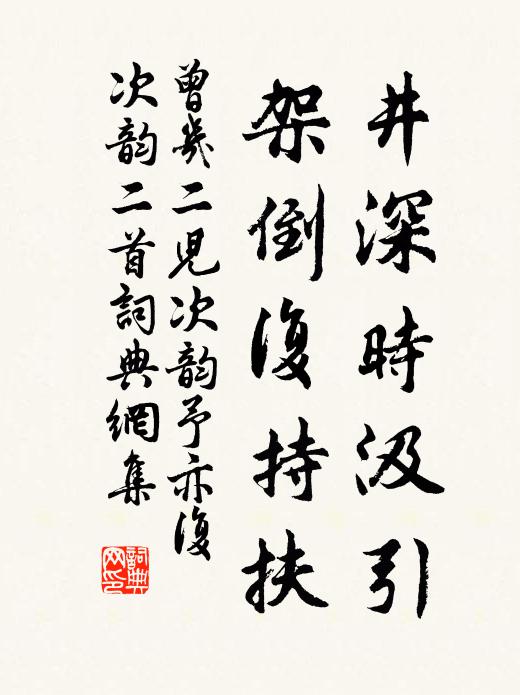 井深時汲引
架倒復持扶
曾幾二児次韵予亦復
次韵二首詞典網集
詞典网印